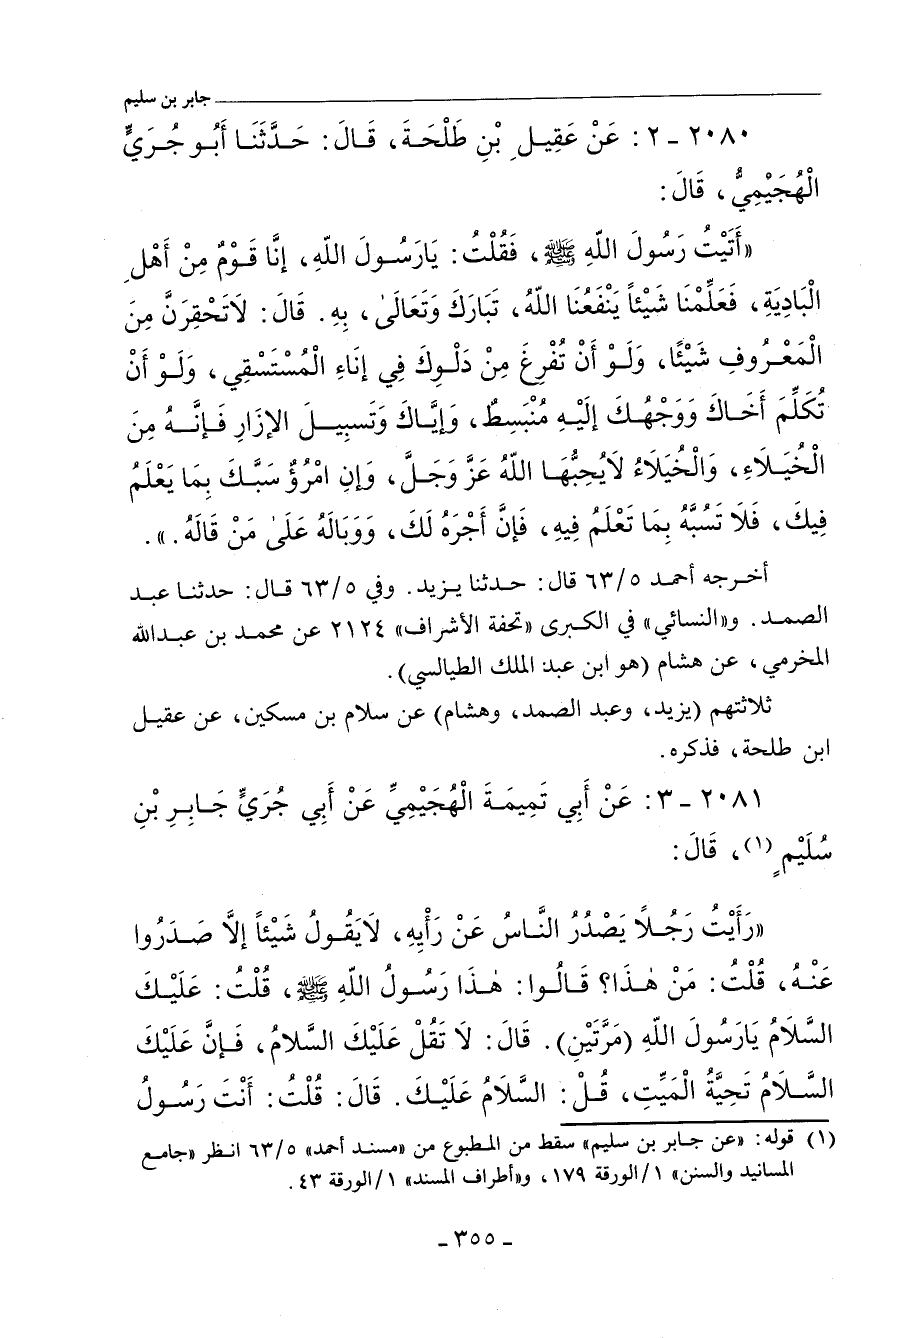 جابر بن سليم
٢٠٨٠ - ٢ : عَنْ عَقِيلِ بْنِ طَلْحَةَ، قَالَ: حَدَّثَنَا أَبُو جُرَيٍّ
الْهُجَيْمِيُّ، قَالَ:
«أَتَيْتُ رَسُولَ اللهِ ﷺ، فَقُلْتُ: يَارَسُولَ اللهِ، إِنَّا قَوْمٌ مِنْ أَهْلِ
الْبَادِيَةِ، فَعَلِّمْنَا شَيْئاً يَنْفَعُنَا اللهُ، تَبَارَكَ وَتَعَالَىٰ، بِهِ. قَالَ: لَاتَحْقِرَنَّ مِنَ
الْمَعْرُوفِ شَيْئًا، وَلَوْ أَنْ تُفْرِغَ مِنْ دَلْوِكَ فِي إِنَاءِ الْمُسْتَسْقِي، وَلَوْ أَنْ
تُكَلِّمَ أَخَاكَ وَوَجْهُكَ إِلَيْهِ مُنْبَسِطٌ، وَإِيَّاكَ وَتَسبِيلَ الإِزَارِ فَإِنَّهُ مِنَ
الْخُيَلَاءِ، وَالْخُيَلَاءُ لَايُحِبُّهَا اللهُ عَزَّ وَجَلَّ، وَإِنِ امْرُؤٌ سَبَّكَ بِمَا يَعْلَمُ
فِيكَ، فَلَا تَسُبَّهُ بِمَا تَعْلَمُ فِيهِ، فَإِنَّ أَجْرَهُ لَكَ، وَوَبَالَهُ عَلَىٰ مَنْ قَالَهُ.».
أخرجه أحمد ٦٣/٥ قال: حدثنا يزيد. وفي ٦٣/٥ قال: حدثنا عبد
الصمد. و«النسائي» في الكبرى «تحفة الأشراف» ٢١٢٤ عن محمد بن عبدالله
المخرمي، عن هشام (هو ابن عبد الملك الطيالسي).
ثلاثتهم (يزيد، وعبد الصمد، وهشام) عن سلام بن مسكين، عن عقيل
ابن طلحة، فذكره.
٢٠٨١ - ٣: عَنْ أَبِي تَمِيمَةَ الْهُجَيْمِيِّ عَنْ أَبِي جُرَيٍّ جَابِرِ بْنِ
سُلَيْمٍ (١)، قَالَ:
«رَأَيْتُ رَجُلاً يَصْدُرُ النَّاسُ عَنْ رَأْيِهِ، لَايَقُولُ شَيْئاً إِلَّا صَدَرُوا
عَنْهُ، قُلْتُ: مَنْ هٰذَا؟ قَالُوا: هٰذَا رَسُولُ اللهِ ﷺ، قُلْتُ: عَلَيْكَ
السَّلَامُ يَارَسُولَ اللهِ (مَرَّتَيْنِ). قَالَ: لَا تَقُلْ عَلَيْكَ السَّلَامُ، فَإِنَّ عَلَيْكَ
السَّلَامُ تَحِيَّةُ الْمَيِّتِ، قُلْ: السَّلَامُ عَلَيْكَ. قَالَ: قُلْتُ: أَنْتَ رَسُولُ
(١) قوله: «عن جابر بن سليم» سقط من المطبوع من «مسند أحمد» ٦٣/٥ انظر «جامع
المسانيد والسنن» ١/الورقة ١٧٩، و«أطراف المسند» ١/الورقة ٤٣.
- ٣٥٥ -